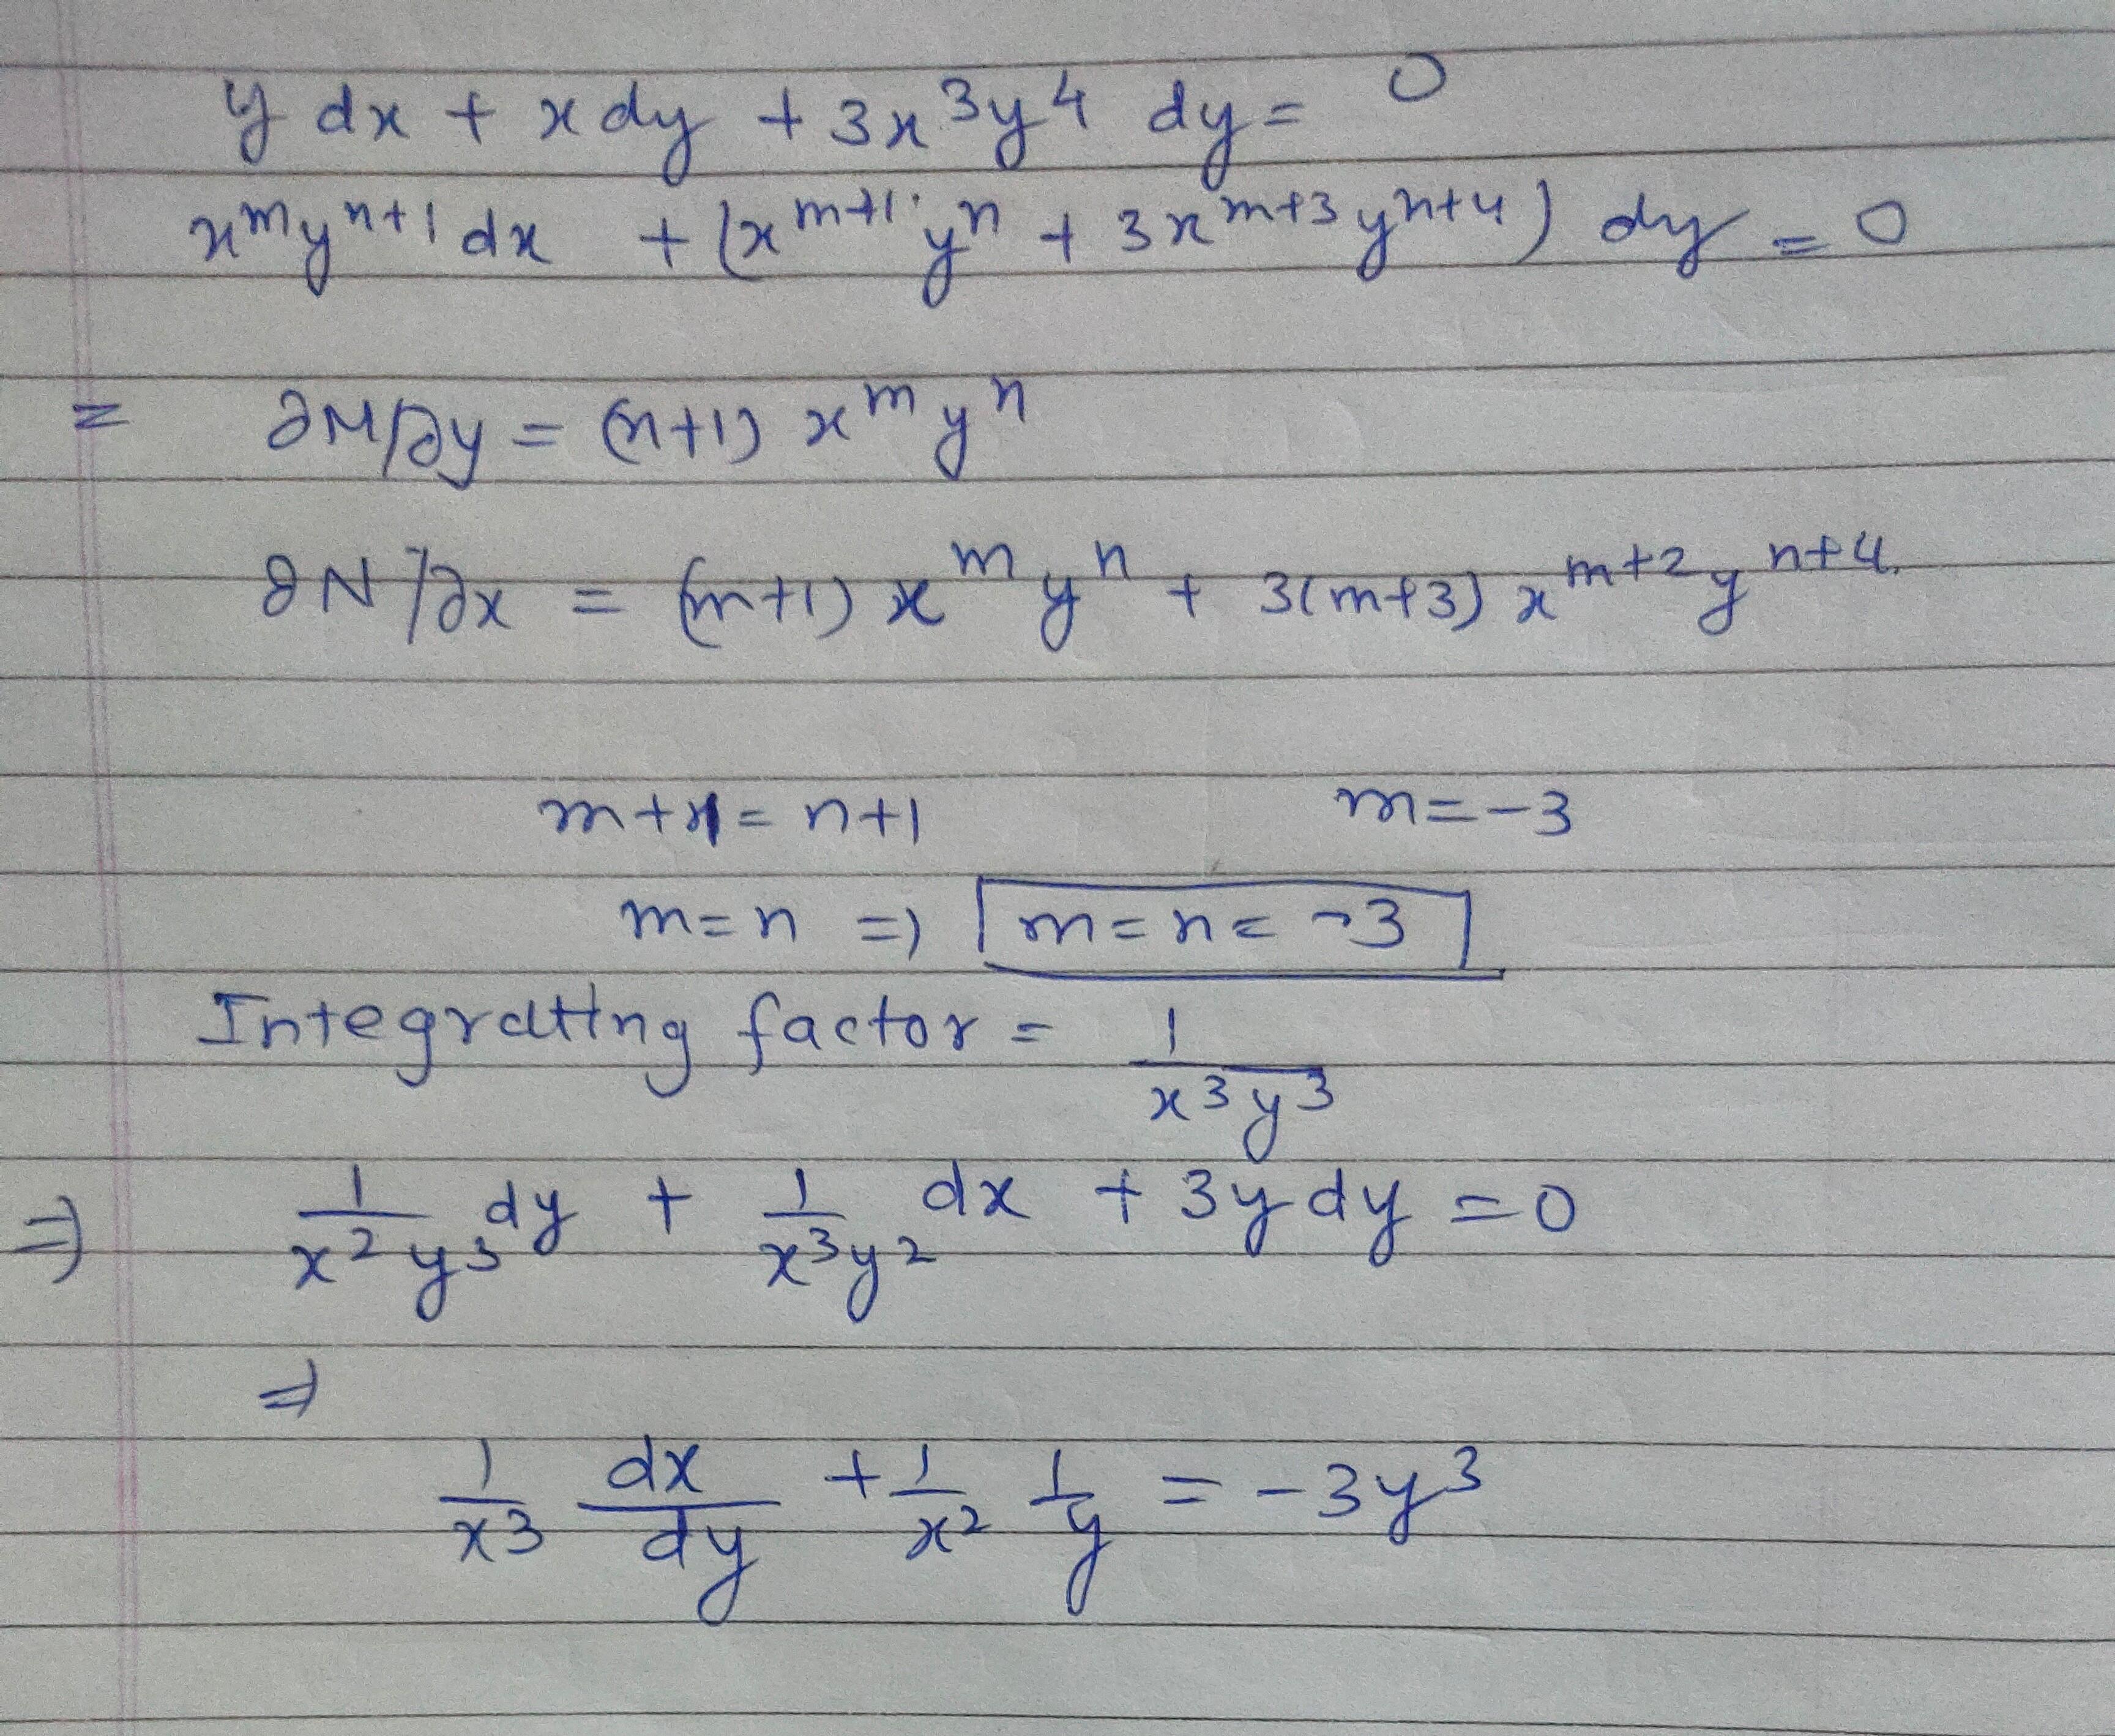 y dx + x dy + 3x³y⁴ dy = 0
x^m y^{n+1} dx + (x^{m+1} y^n + 3x^{m+3} y^{n+4}) dy = 0
= ∂M/∂y = (n+1) x^m y^n
∂N/∂x = (m+1) x^m y^n + 3(m+3) x^{m+2} y^{n+4}
m+1 = n+1 m = -3
m = n ⇒ m = n = -3
Integrating factor = 1/(x³y³)
⇒ 1/(x²y³) dy + 1/(x³y²) dx + 3y dy = 0
⇒
1/x³ dx/dy + 1/x² 1/y = -3y³